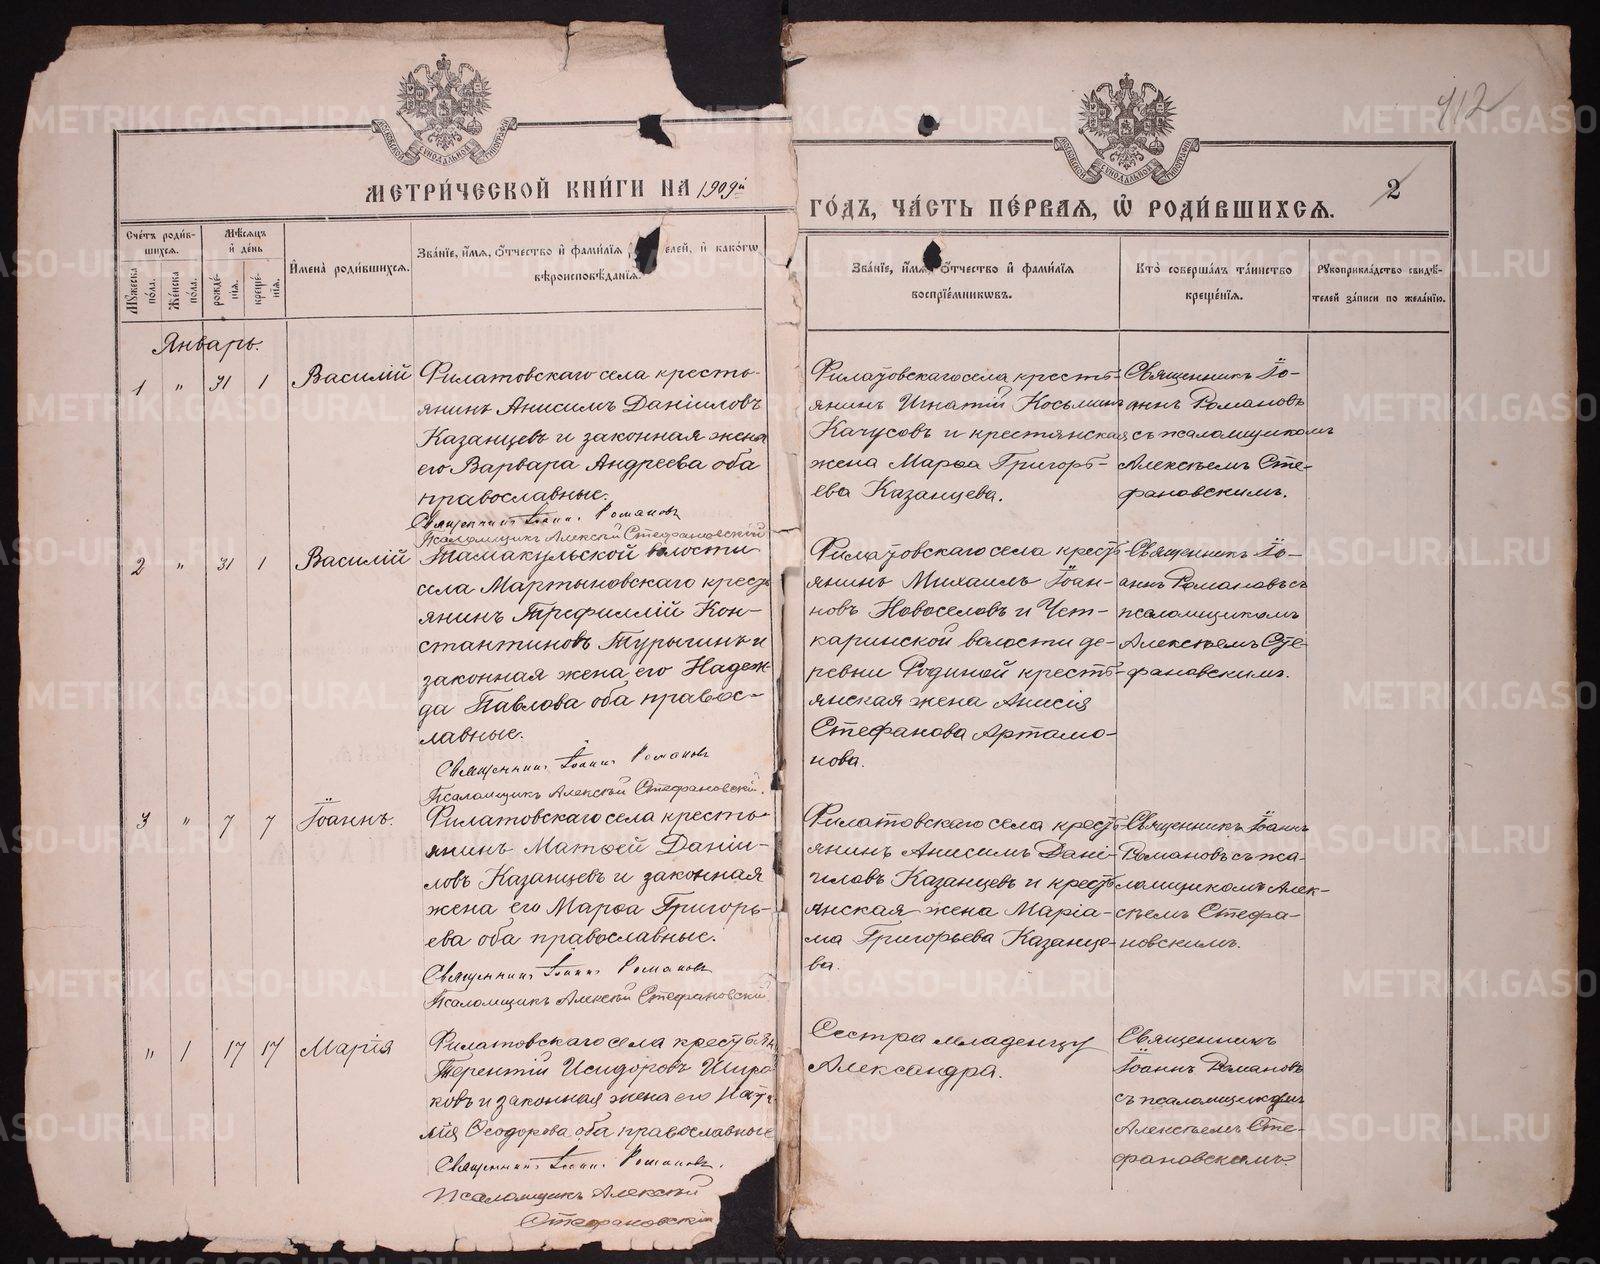 412
2
МОСКОВСКОЙ СѴНОДАЛЬНОЙ ТИПОГРАФІИ
МОСКОВСКОЙ СѴНОДАЛЬНОЙ ТИПОГРАФІИ
МЕТРИ́ЧЕСКОЙ КНИ́ГИ НА 1909й
ГО́ДЪ, ЧА́СТЬ ПЕ́РВАЯ, Ѡ҆ РОДИ́ВШИХСЯ.
Сче́тъ роди́в-
шихся.
Мужеска по́ла.
Женска по́ла.
Мѣ́сяцъ
и҆ де́нь
рожде́-
нія.
креще́-
нія.
И҆мена̀ роди́вшихся.
Зва́нїе, и҆́мя, ѻ҆́тчество и҆ фами́лїя елей, и҆ како́гѡ
вѣроисповѣ́данїя.
Зва́нїе, и҆́мя, ѻ҆́тчество и҆ фами́лїя
воспрїе́мникѡвъ.
Кто̀ соверша́лъ та́инство
креще́нїя.
Рукоприкла́дство свидѣ́-
телей за́писи по жела́нїю.
Январь.
1 " 31 1 Василій
Филатовскаго села кресть-
янинъ Анисимъ Даніиловъ
Казанцевъ и законная жена
его Варвара Андреева оба
православные.
Священникъ Іоаннъ Романовъ
Псаломщикъ Алексѣй Стефановскій
Филатовскаго села кресть-
янинъ Игнатій Косьминъ
Качусовъ и крестянская
жена Марѳа Григорь-
ева Казанцева.
Священникъ Іо-
аннъ Романовъ
съ псаломщикомъ
Алексѣемъ Сте-
фановскимъ.
2 " 31 1 Василій
Тамакульской волости
села Мартыновскаго кресть
янинъ Трефиллій Кон-
стантиновъ Турыгинъ и
законная жена его Надеж-
да Павлова оба правос-
лавные.
Священникъ Іоаннъ Романовъ
Псаломщикъ Алексѣй Стефановскій.
Филатовскаго села кресть
янинъ Михаилъ Іоан-
новъ Новоселовъ и Чет-
каринской волости де-
ревни Родиной кресть-
янская жена Анисія
Стефанова Артамо-
нова.
Священникъ Іо-
аннъ Романовъ съ
псаломщикомъ
Алексѣемъ Сте-
фановскимъ.
3 " 7 7 Іоаннъ.
Филатовскаго села кресть-
янинъ Матѳей Даніи-
ловъ Казанцевъ и законная
жена его Марѳа Григорь-
ева оба православные.
Священникъ Іоаннъ Романовъ
Псаломщикъ Алексѣй Стефановскій
Филатовскаго села кресть
янинъ Анисимъ Дані-
иловъ Казанцевъ и кресть
янская жена Маріа-
ма Григорьева Казанце-
ва.
Священникъ Іоаннъ
Романовъ съ пса-
ломщикомъ Алек-
сѣемъ Стефа-
новскимъ.
" 1 17 17 Марія
Филатовскаго села крестьян
Терентій Исидоровъ Широ
ковъ и законная жена его Ната
лія Ѳеодорова оба православные
Священникъ Іоаннъ Романовъ.
Псаломщикъ Алексѣй
Стефановскій
Сестра младенцу
Александра.
Священникъ
Іоаннъ Романовъ
съ псаломщикомъ
Алексѣемъ Сте-
фановскимъ.
METRIKI.GASO-URAL.RU